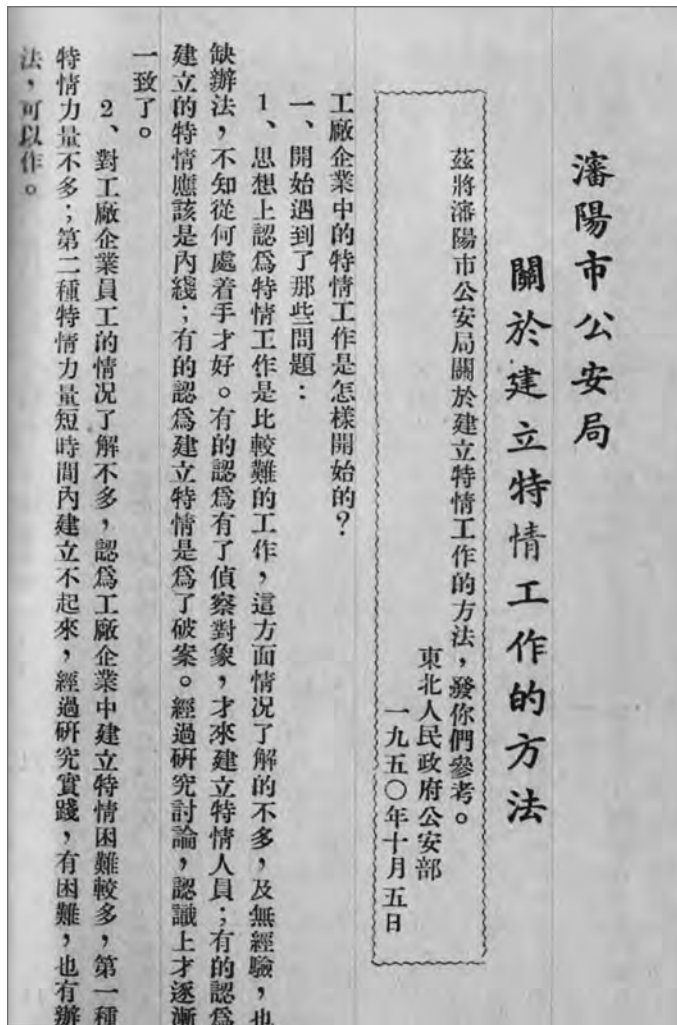 瀋陽市公安局
關於建立特情工作的方法
茲將瀋陽市公安局關於建立特情工作的方法，發你們參考。
東北人民政府公安部
一九五〇年十月五日
工廠企業中的特情工作是怎樣開始的？
一、開始遇到了那些問題：
1、思想上認爲特情工作是比較難的工作，這方面情况了解的不多，及無經驗，也
缺辦法，不知從何處着手才好。有的認爲有了偵察對象，才來建立特情人員；有的認爲
建立的特情應該是內綫；有的認爲建立特情是爲了破案。經過研究討論，認識上才逐漸
一致了。
2、對工廠企業員工的情况了解不多，認爲工廠企業中建立特情困難較多，第一種
特情力量不多；第二種特情力量短時間內建立不起來，經過研究實踐，有困難，也有辦
法，可以作。